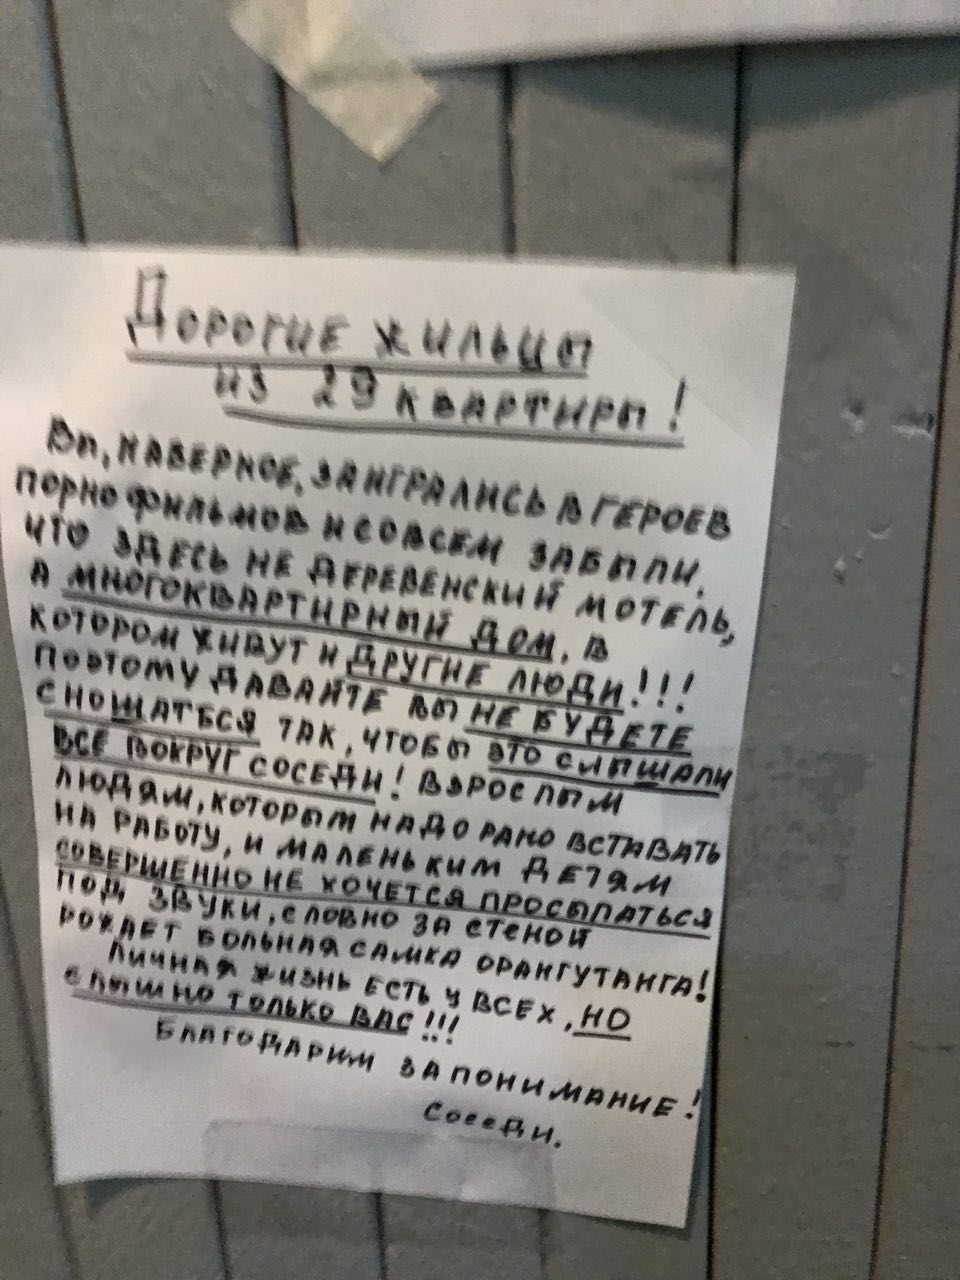 Дорогие жильцы
из 29 квартиры!
Вы, наверное, заигрались в героев
порнофильмов и совсем забыли,
что здесь не деревенский мотель,
а многоквартирный дом, в
котором живут и другие люди!!!
Поэтому давайте вы не будете
сношаться так, чтобы это слышали
все вокруг соседи! Взрослым
людям, которым надо рано вставать
на работу, и маленьким детям
совершенно не хочется просыпаться
под звуки, словно за стеной
рожает больная самка орангутанга!
Личная жизнь есть у всех, но
слышно только вас!!!
Благодарим за понимание!
Соседи.